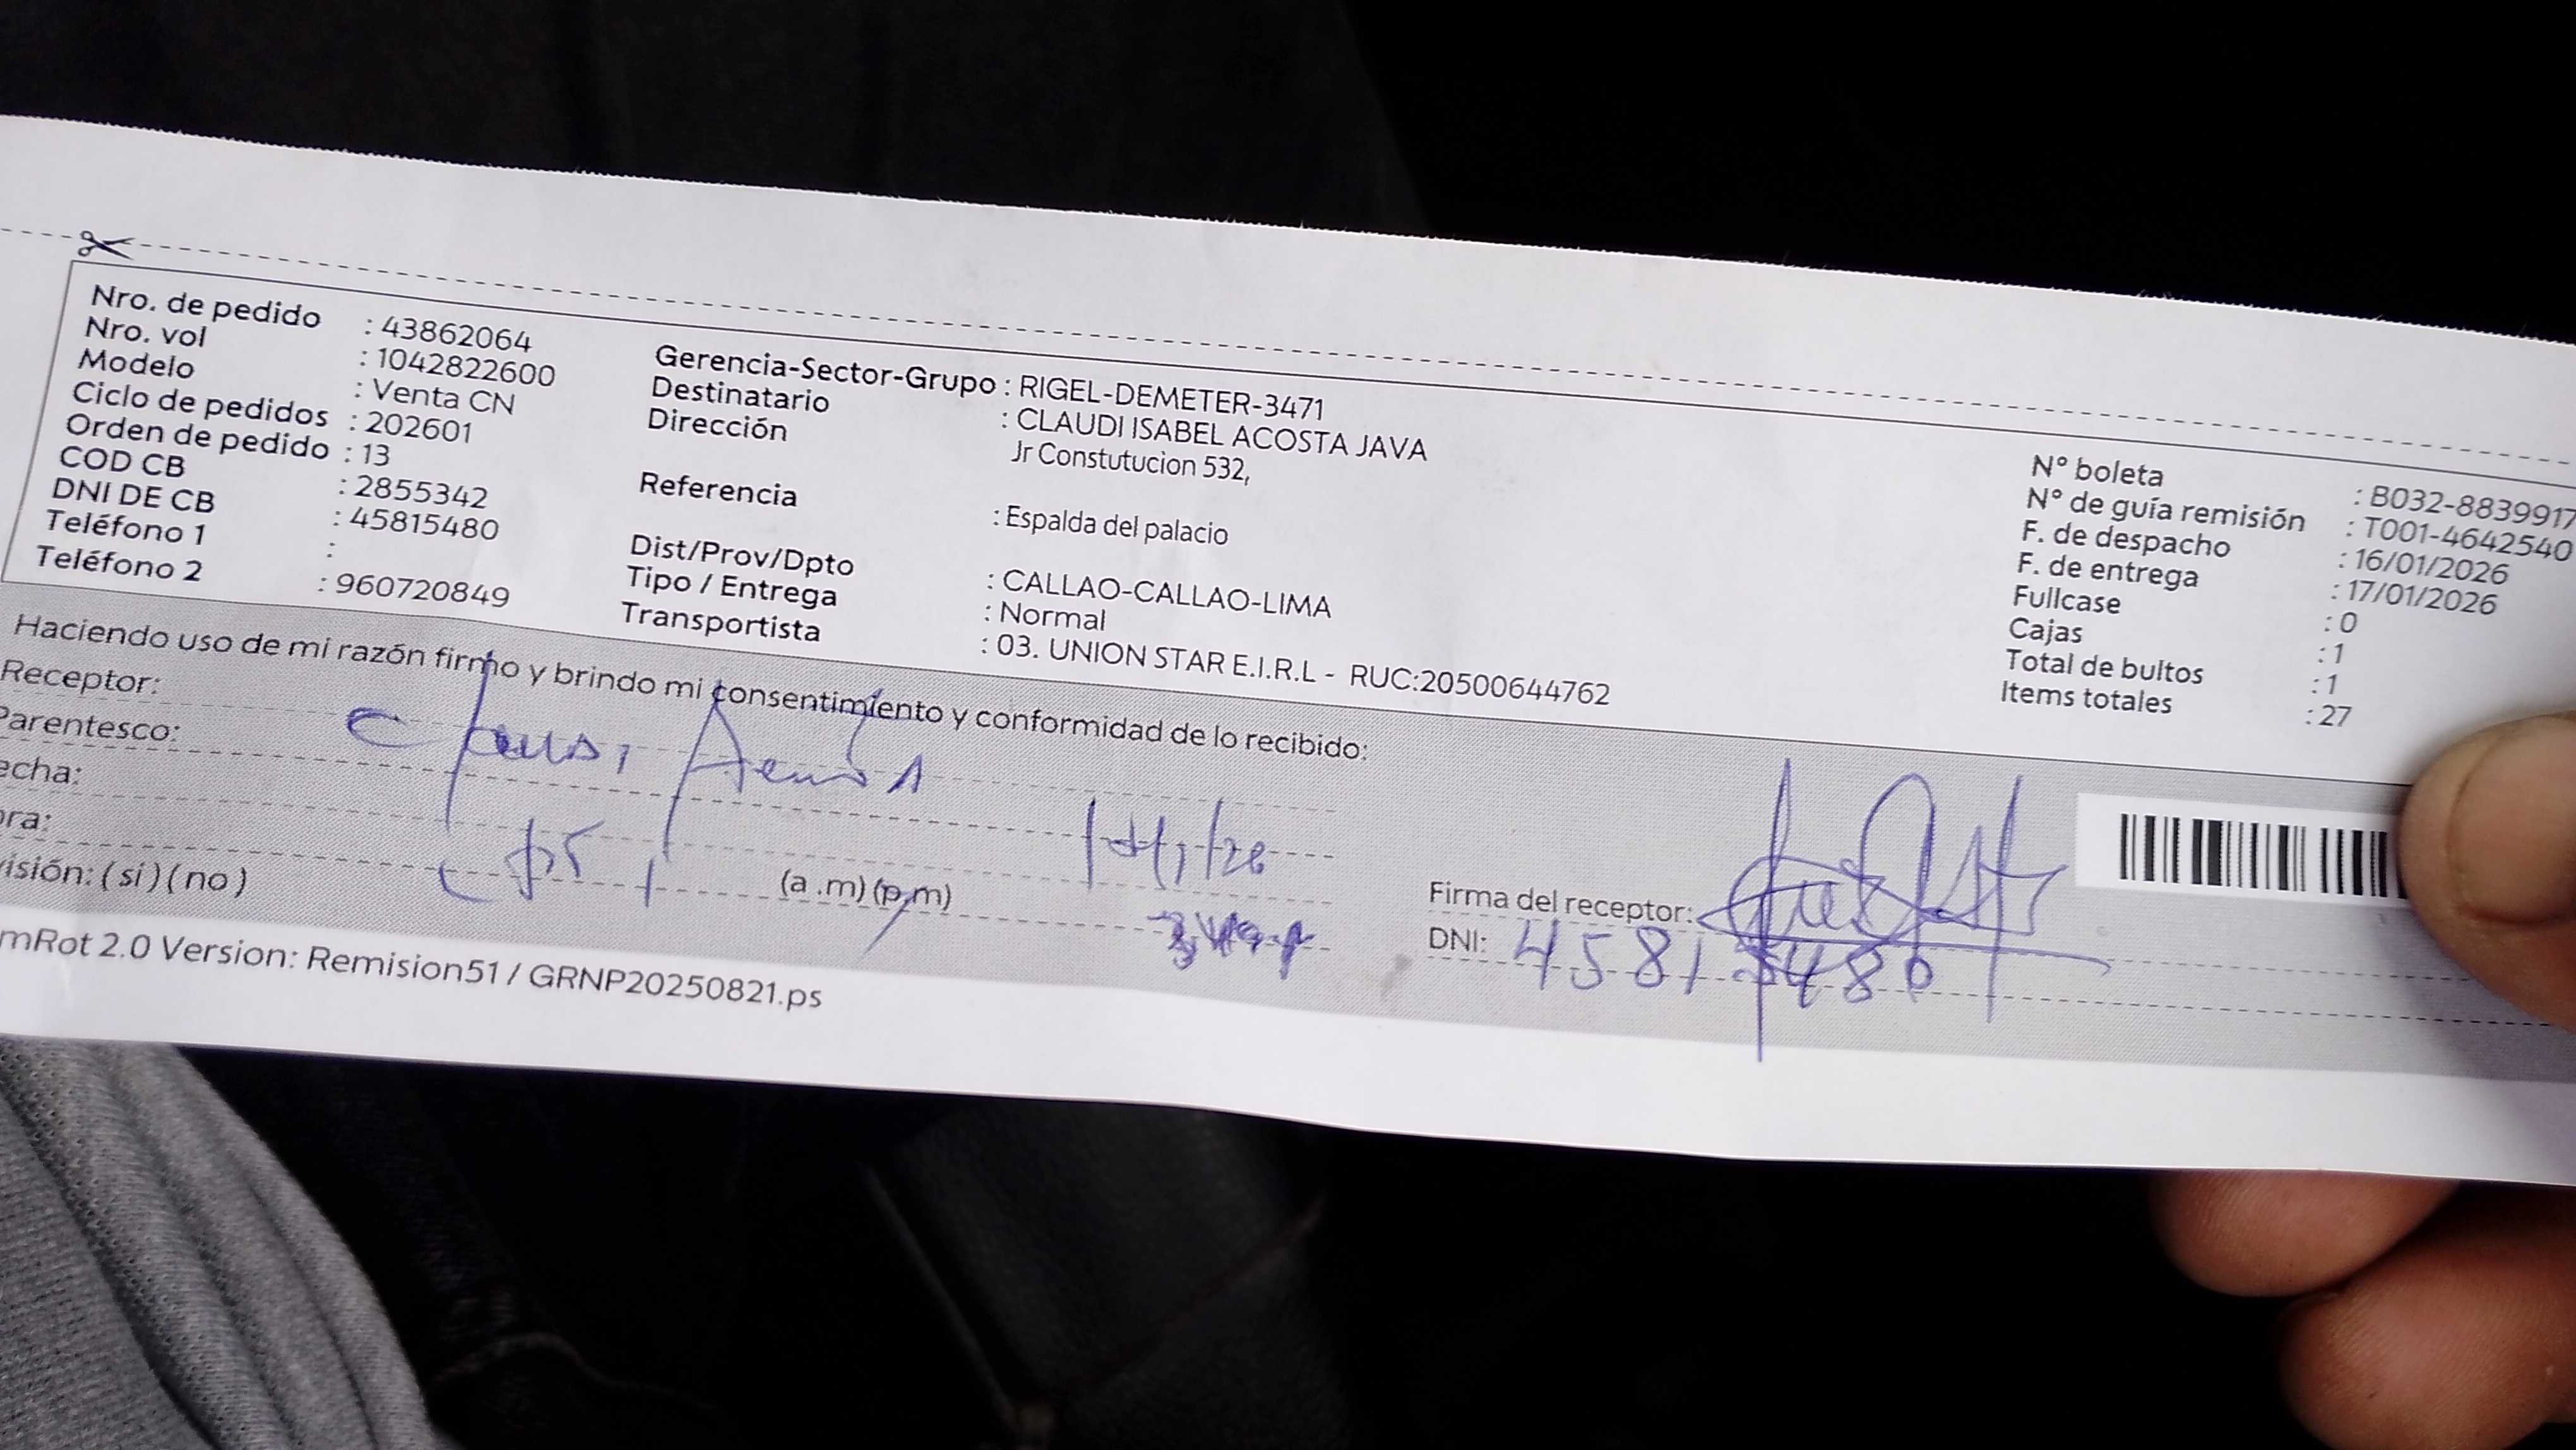 Nro. de pedido : 43862064
Nro. vol : 1042822600
Modelo : Venta CN
Ciclo de pedidos : 202601
Orden de pedido : 13
COD CB : 2855342
DNI DE CB : 45815480
Teléfono 1 :
Teléfono 2 : 960720849
Gerencia-Sector-Grupo : RIGEL-DEMETER-3471
Destinatario : CLAUDI ISABEL ACOSTA JAVA
Dirección Jr Constutucion 532,
Referencia : Espalda del palacio
Dist/Prov/Dpto : CALLAO-CALLAO-LIMA
Tipo / Entrega : Normal
Transportista : 03. UNION STAR E.I.R.L - RUC:20500644762
N° boleta : B032-8839917
N° de guía remisión : T001-4642540
F. de despacho : 16/01/2026
F. de entrega : 17/01/2026
Fullcase : 0
Cajas : 1
Total de bultos : 1
Items totales : 27
Haciendo uso de mi razón firmo y brindo mi consentimiento y conformidad de lo recibido:
Receptor:
Parentesco:
echa:
ora:
(a .m) (p.m)
isión: ( si ) ( no )
Firma del receptor:
DNI: 45815480
mRot 2.0 Version: Remision51 / GRNP20250821.ps